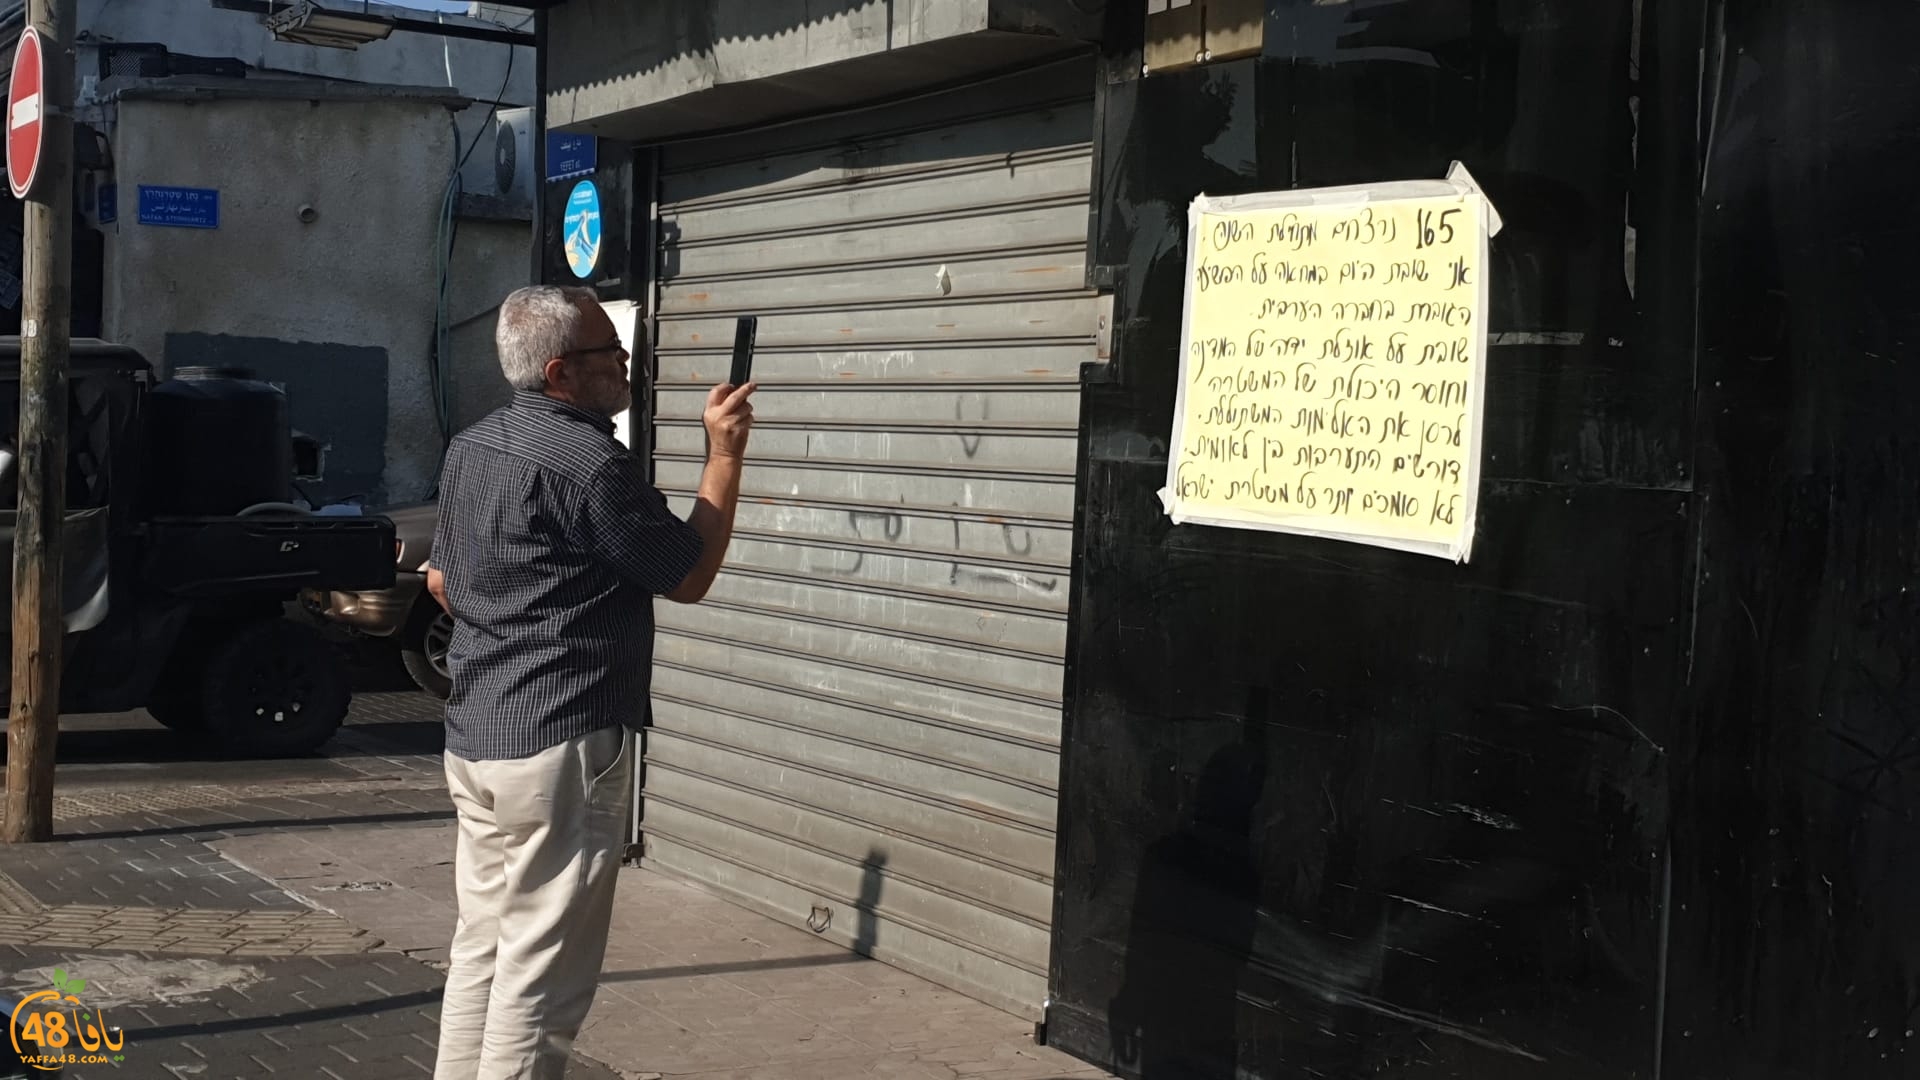 165 נרצחים מתחילת השנה.
אני שובת היום במחאה על הפשיעה
הגוברת בחברה הערבית.
שובת על אוזלת ידה של המדינה
וחוסר היכולת של המשטרה
לרסן את האלימות המשתוללת.
דורשים התערבות בין לאומית.
לא סומכים יותר על משטרת ישראל
YEFET
48 يافا
YAFFA48.COM